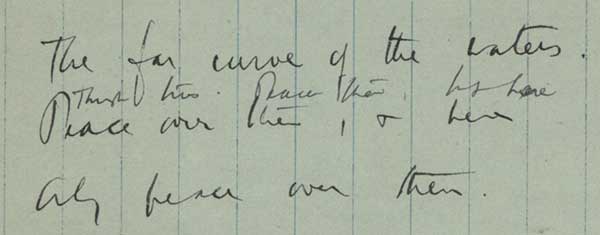 The far curve of the waters.
Peace then, but here
Peace over them, & here
Only peace over them.